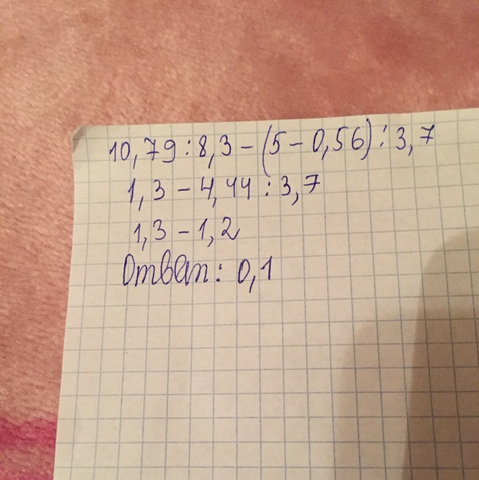 10,79 : 8,3 - (5 - 0,56) : 3,7
1,3 - 4,44 : 3,7
1,3 - 1,2
Ответ: 0,1